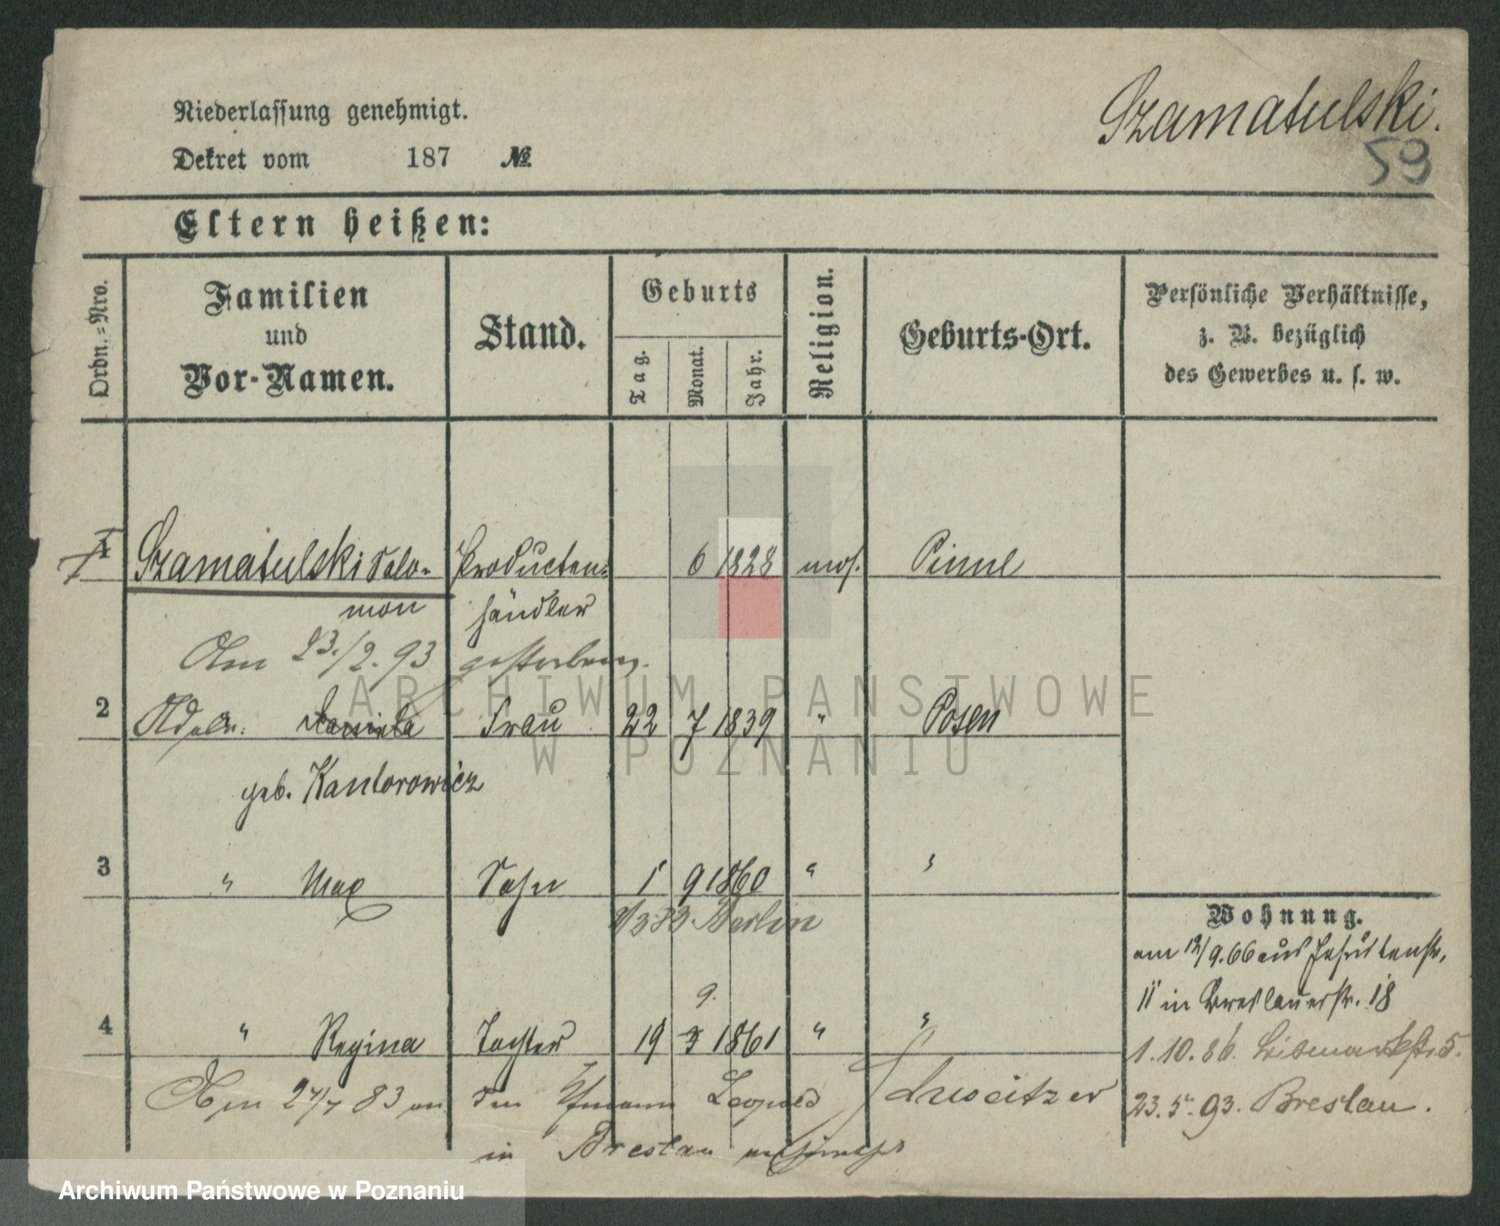 Niederlassung genehmigt.
Szamatulski.
Dekret vom 187 №
59
Eltern heißen:
Ordn.=Nro.
Familien
und
Vor-Namen.
Stand.
Geburts
Tag.
Monat.
Jahr.
Religion.
Geburts-Ort.
Persönliche Verhältnisse,
z. B. bezüglich
des Gewerbes u. s. w.
1 Szamatulski Salo- Producten= 6 1828 mos. Pinne
mon händler
Am 23./2. 93 gestorben.
2 Frau 22 7 1839 " Posen
geb. Kantorowicz
3 " Max Sohn 1 9 1860 " "
Berlin
Wohnung.
am 12/9. 66 aus Jesuitenstr.
11 in Breslauerstr. 18
9.
4 " Regina Tochter 19 3 1861 " "
1. 10. 86. Bismarckstr. 5.
Am 24/7 83 an den Leopold
23. 5. 93. Breslau.
in Breslau
ARCHIWUM PAŃSTWOWE
W POZNANIU
Archiwum Państwowe w Poznaniu